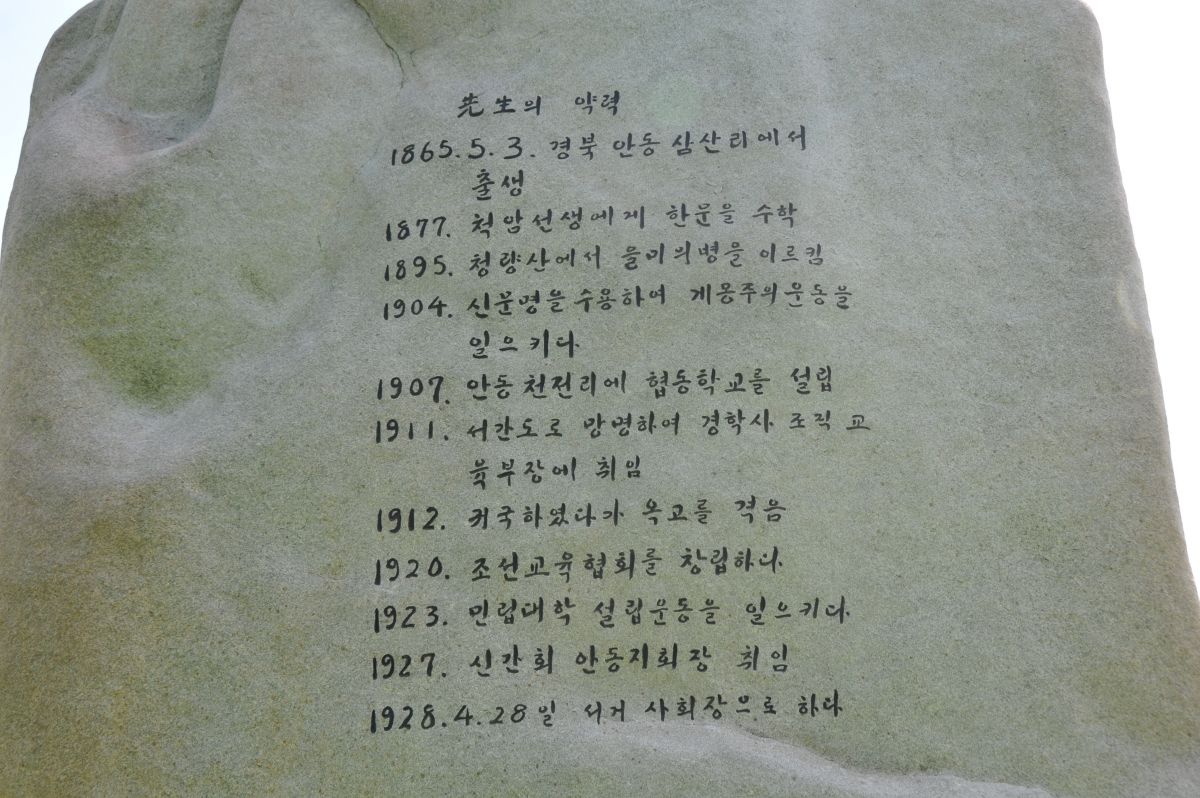 先生의 약력
1865.5.3. 경북 안동 삼산리에서
출생
1877. 척암선생에게 한문을 수학
1895. 청량산에서 을미의병을 이르킴
1904. 신문명을 수용하여 계몽주의운동을
일으키다
1907. 안동 천전리에 협동학교를 설립
1911. 서간도로 망명하여 경학사 조직 교
육부장에 취임
1912. 귀국하였다가 옥고를 격음
1920. 조선교육협회를 창립하다.
1923. 민립대학 설립운동을 일으키다.
1927. 신간회 안동지회장 취임
1928.4.28일 서거 사회장으로 하다